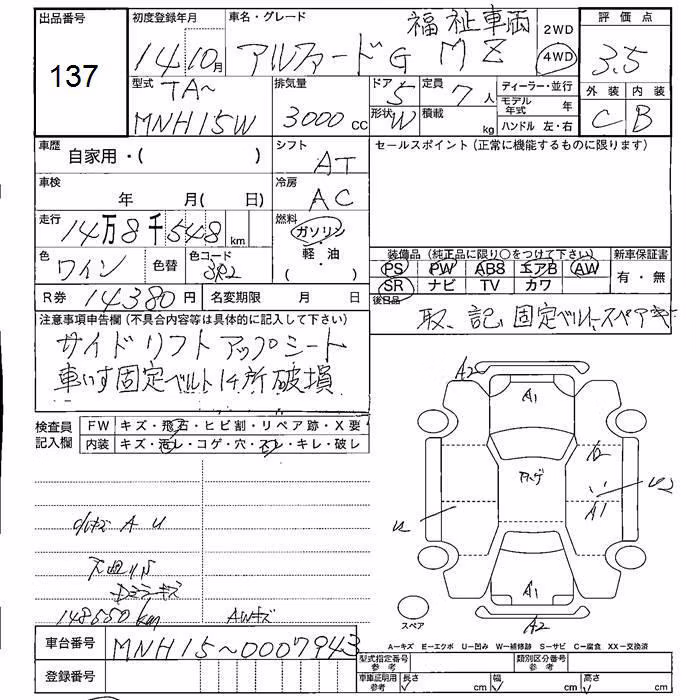 出品番号 初度登録年月 車名・グレード 評価点
137 14 10月 アルファードG MZ 福祉車両 2WD 4WD 3.5
型式 排気量 ドア 定員 ディーラー・並行 外装 内装
TA~ 5 7人 モデル年式 年
MNH15W 3000cc 形状 W 積載 kg ハンドル 左・右 C B
車歴 自家用・( ) シフト AT セールスポイント(正常に機能するものに限ります)
車検 年 月( 日) 冷房 AC
走行 14万8千548km 燃料 ガソリン・軽・油 ( )
色 ワイン 色替 色コード 3R2 装備品(純正品に限り○をつけて下さい) 新車保証書
PS PW ABS エアB AW 有・無
SR ナビ TV カワ
R券 14380円 名変期限 月 日 後日品
取、記、固定ベルト、スペアキー
注意事項申告欄(不具合内容等は具体的に記入して下さい)
サイドリフトアップシート
車いす固定ベルト1ヶ所破損
検査員記入欄 FW キズ・飛石・ヒビ割・リペア跡・X要
内装 キズ・汚レ・コゲ・穴・スレ・キレ・破レ
A2
A1
A2
U2
A1
A U
148550km AWキズ
A1
スペア A2
車台番号 MNH15~0007943
A=キズ E=エクボ U=凹み W=補修跡 S=サビ C=腐食 XX=交換済
登録番号 型式指定番号 参考 類別区分番号 参考
車庫証明用 参考 長さ cm 幅 cm 高さ cm